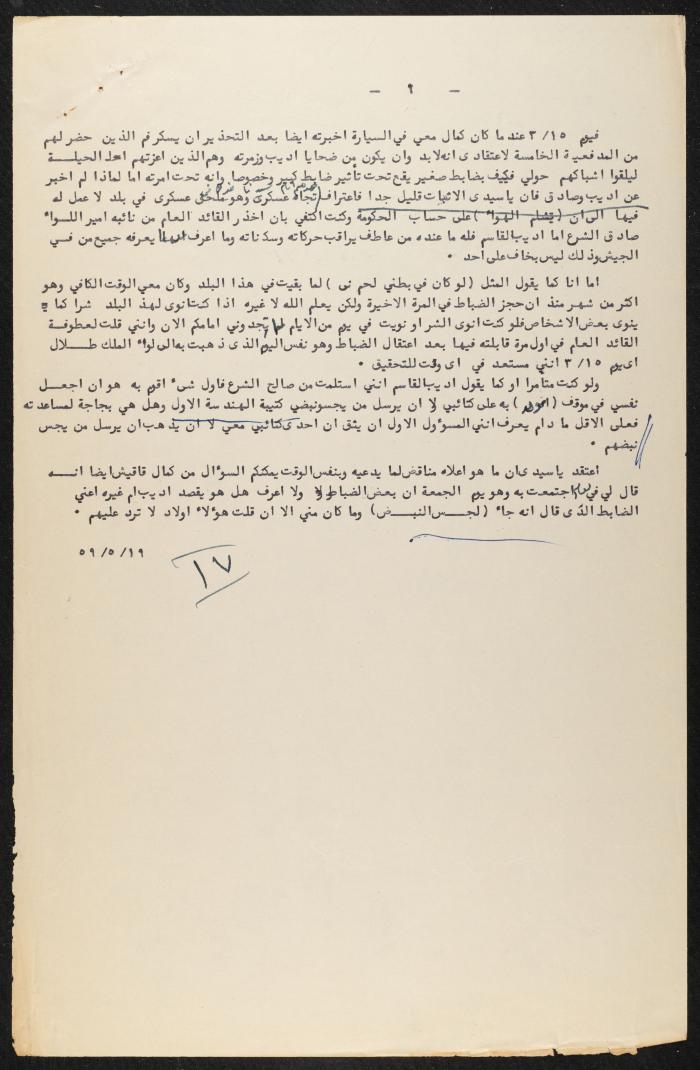 - ٢ -
فيوم ٣/١٥ عندما كان كمال معي في السيارة اخبرته ايضا بعد التحذير ان يسكر فم الذين حضر لهم
من المدفعية الخامسة لاعتقادي انه لابد وان يكون من ضحايا اديب وزمرته وهم الذين اعزتهم الحيلـــة
ليلقوا اشباكهم حولي فكيف بضابط صغير يقع تحت تأثير ضابط كبير وخصوصا وانه تحت امرته اما لماذا لم اخبر
عن اديب وصادق فان ياسيدي الاثبات قليل جدا فاعتراف تجاه عسكري وهو ملحق عسكري في بلد لا عمل له
فيها الى ان (يشلم الهواء) على حساب الحكومة وكنت اكتفي بان احذر القائد العام من نائبه امير اللــواء
صادق الشرع اما اديب القاسم فله ما عنده من عاطف يراقب حركاته وسكناته وما اعرف يعرفه جميع من فــي
الجيش وذلك ليس بخاف على احد .
اما انا كما يقول المثل (لو كان في بطني لحم نى) لما بقيت في هذا البلد وكان معي الوقت الكافي وهو
اكثر من شهر منذ ان حجز الضباط في المرة الاخيرة ولكن يعلم الله لا غيره اذا كنت انوى لهذ البلد شرا كما
ينوى بعض الاشخاص فلو كنت انوى الشر او نويت في يوم من الايام لما تجدوني امامكم الان وانني قلت لعطوفة
القائد العام في اول مرة قابلته فيها بعد اعتقال الضباط وهو نفس اليوم الذى ذهبت به الى لواء الملك طـــلال
اى يوم ٣/١٥ انني مستعد في اى وقت للتحقيق .
ولو كنت متآمرا او كما يقول اديب القاسم انني استلمت من صالح الشرع فاول شىء اقوم به هو ان اجعـــل
نفسي في موقف ( ) به على كتائبي لا ان يرسل من يجسو نبضي كتيبة الهندسة الاول وهل هي بحاجة لمساعدته
فعلى الاقل ما دام يعرف انني المسؤول الاول ان يثق ان احدى كتائبي معي لا ان يذهب ان يرسل من يجس
نبضهم .
اعتقد ياسيدى ان ما هو اعلاه مناقض لما يدعيه وبنفس الوقت يمكنكم السؤال من كمال قاقيش ايضا انــــه
قال لي في يوم اجتمعت به وهو يوم الجمعة ان بعض الضباط ولا اعرف هل هو يقصد اديب ام غيره اعني
الضابط الذى قال انه جاء (لجــس النبــض) وما كان مني الا ان قلت هؤلاء اولاد لا ترد عليهم .
٥٩/٥/١٩
١٧